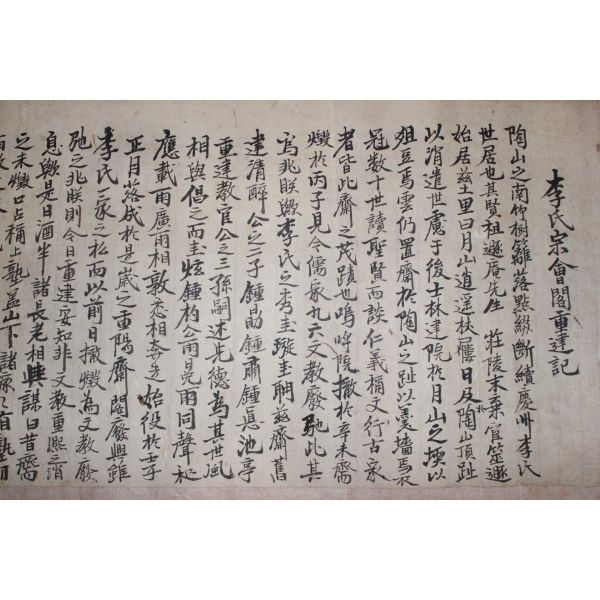 李氏宗會閣重建記
陶山之南竹樹籬落點綴斷續慶州李氏
世居也其賢祖遯庵先生 莊陵末棄官筮遯
始居玆土里曰月山逍遥杖屨日及於陶山頂趾
以消遣世慮于後士林建院於月山之
俎豆焉雲仍置齋於陶山之趾以羹墻焉
冠數十世讀聖賢而談仁義稱文行古家
者皆此齋之茂蹟也嗚呼院撤於辛未齋
燬於丙子見今儒家九六文教廢弛此其
爲兆眹歟李氏之秀圭璇圭明玆齋舊
建清醉公之二子鍾勗鍾肅鍾 池亭
重建教官公之三孫嗣述先德爲其世風
相與倡之而圭炫鍾杓 雨晃雨同聲和
應載雨廣雨相敦 相 之始役於壬子
正月落成於是歲之重陽齋閣廢興雖
李氏一家之私而以前日撤燬爲文教廢
弛之兆眹則今日重建安知非文教重熙之消
息歟是日酒半諸長老相與謀曰昔齋
之未燬口占稱上塾盖山下諸